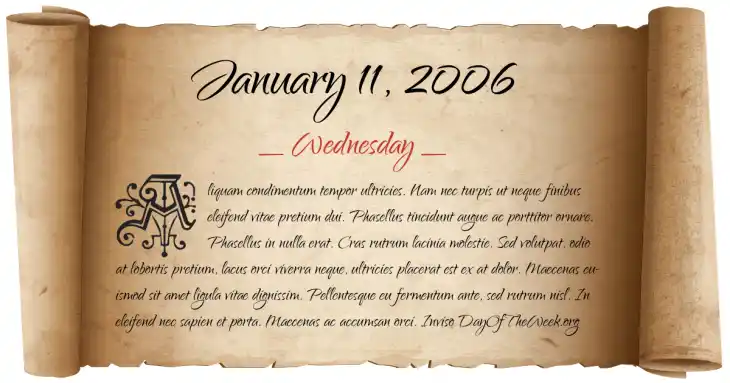 January 11, 2006
__ Wednesday __
Aliquam condimentum tempor ultricies. Nam nec turpis ut neque finibus
eleifend vitae pretium dui. Phasellus tincidunt augue ac porttitor ornare.
Phasellus in nulla erat. Cras rutrum lacinia molestie. Sed volutpat, odio
at lobortis pretium, lacus orci viverra neque, ultricies placerat est ex at dolor. Maecenas eu-
ismod sit amet ligula vitae dignissim. Pellentesque eu fermentum ante, sed rutrum nisl. In
eleifend nec sapien et porta. Maecenas ac accumsan orci. Inviso DayOfTheWeek.org